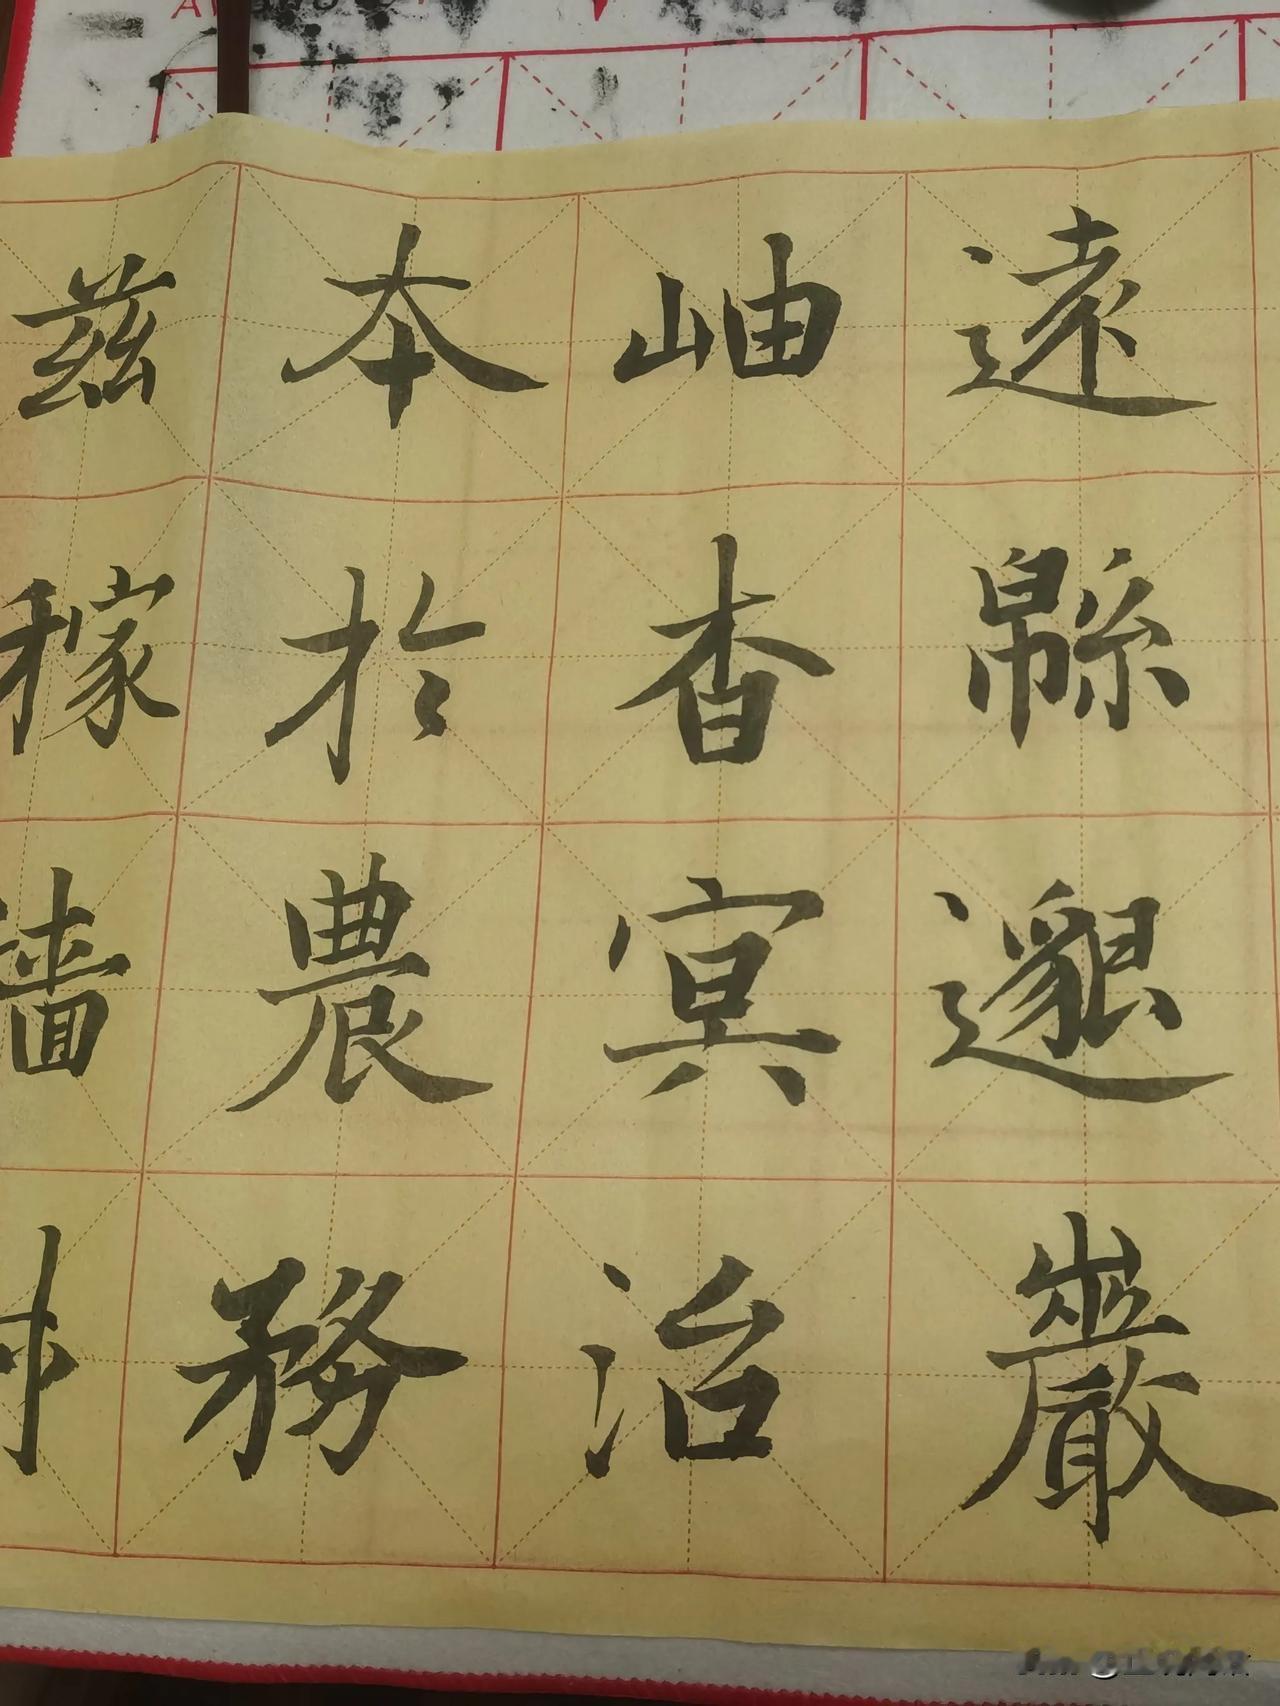 遠緜邈巖
岫杳冥治
本於農務
茲稼穡